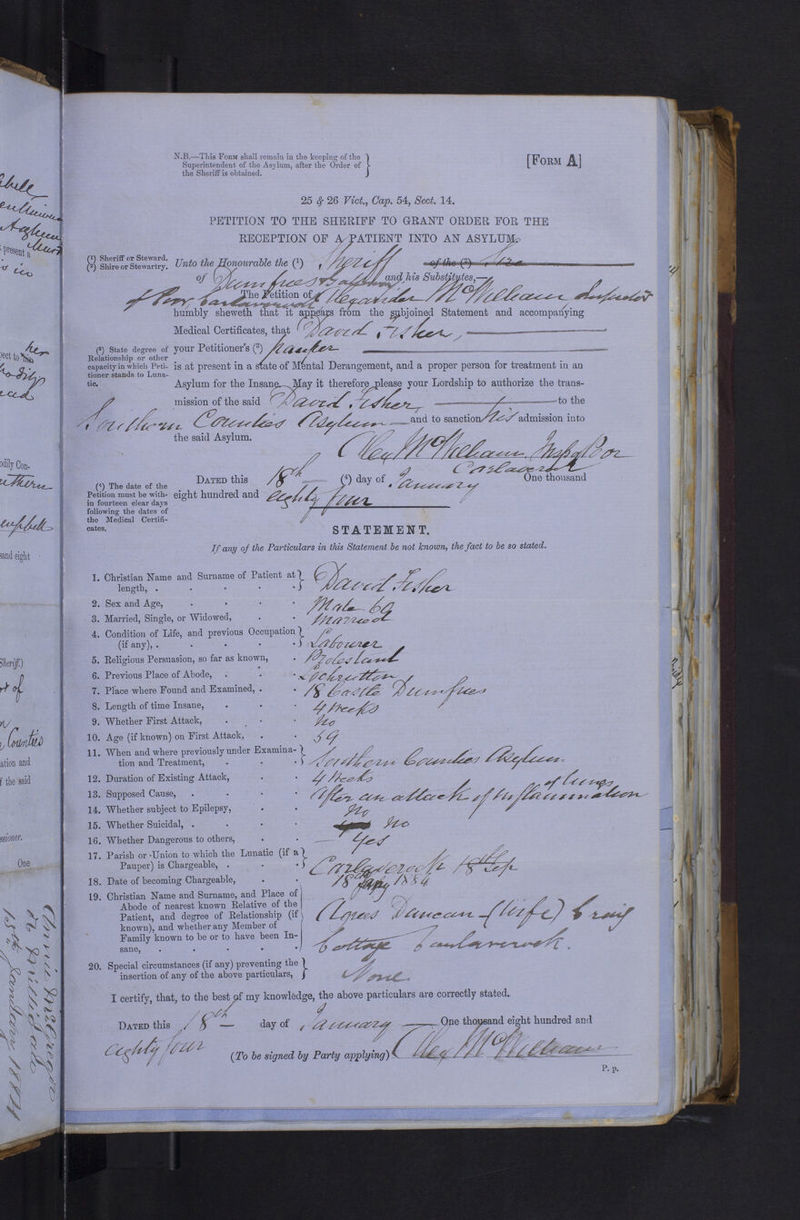 N.B.—This Form shall remain in the keeping of the
Superintendent of the Asylum, after the Order of
the Sheriff is obtained.
[Form A]
25 & 26 Vict., Cap. 54, Sect. 14.
PETITION TO THE SHERIFF TO GRANT ORDER FOR THE
RECEPTION OF A PATIENT INTO AN ASYLUM.
(1) Sheriff or Steward.
(2) Shire or Stewartry.
Unto the Honourable the (1) Sheriff of the (2) Shire
of Dumfries & Galloway and his Substitutes,—
The Petition of Alexander McWilliam Inspector
of Poor Carlaverock
humbly sheweth that it appears from the subjoined Statement and accompanying
Medical Certificates, that David Fisher,
(3) State degree of
Relationship or other
capacity in which Peti-
tioner stands to Luna-
tic.
your Petitioner's (3) pauper
is at present in a state of Mental Derangement, and a proper person for treatment in an
Asylum for the Insane. May it therefore please your Lordship to authorize the trans-
mission of the said David Fisher, to the
Southern Counties Asylum and to sanction his admission into
the said Asylum.
Alex McWilliam Insp of Poor
Carlaverock
(4) The date of the
Petition must be with-
in fourteen clear days
following the dates of
the Medical Certifi-
cates.
Dated this 18th (4) day of January One thousand
eight hundred and eighty four
STATEMENT.
If any of the Particulars in this Statement be not known, the fact to be so stated.
1. Christian Name and Surname of Patient at
length, . David Fisher
2. Sex and Age, Male 60
3. Married, Single, or Widowed, Married
4. Condition of Life, and previous Occupation
(if any), . Labourer
5. Religious Persuasion, so far as known, Protestant
6. Previous Place of Abode, Lochrutton
7. Place where Found and Examined, 18 Castle Dumfries
8. Length of time Insane, 4 Weeks
9. Whether First Attack, No
10. Age (if known) on First Attack, 59
11. When and where previously under Examina-
tion and Treatment, Southern Counties Asylum
12. Duration of Existing Attack, 4 Weeks
13. Supposed Cause, After an attack of Inflammation of lungs
14. Whether subject to Epilepsy, No
15. Whether Suicidal, No
16. Whether Dangerous to others, Yes
17. Parish or Union to which the Lunatic (if a
Pauper) is Chargeable, Carlaverock
18. Date of becoming Chargeable, 18th Jany 1884
19. Christian Name and Surname, and Place of
Abode of nearest known Relative of the
Patient, and degree of Relationship (if
known), and whether any Member of
Family known to be or to have been In-
sane, Agnes Duncan (Wife) Craig
Cottage Carlaverock.
20. Special circumstances (if any) preventing the
insertion of any of the above particulars, None
I certify, that, to the best of my knowledge, the above particulars are correctly stated.
Dated this 18th day of January One thousand eight hundred and
eighty four (To be signed by Party applying) Alex McWilliam
P. p.